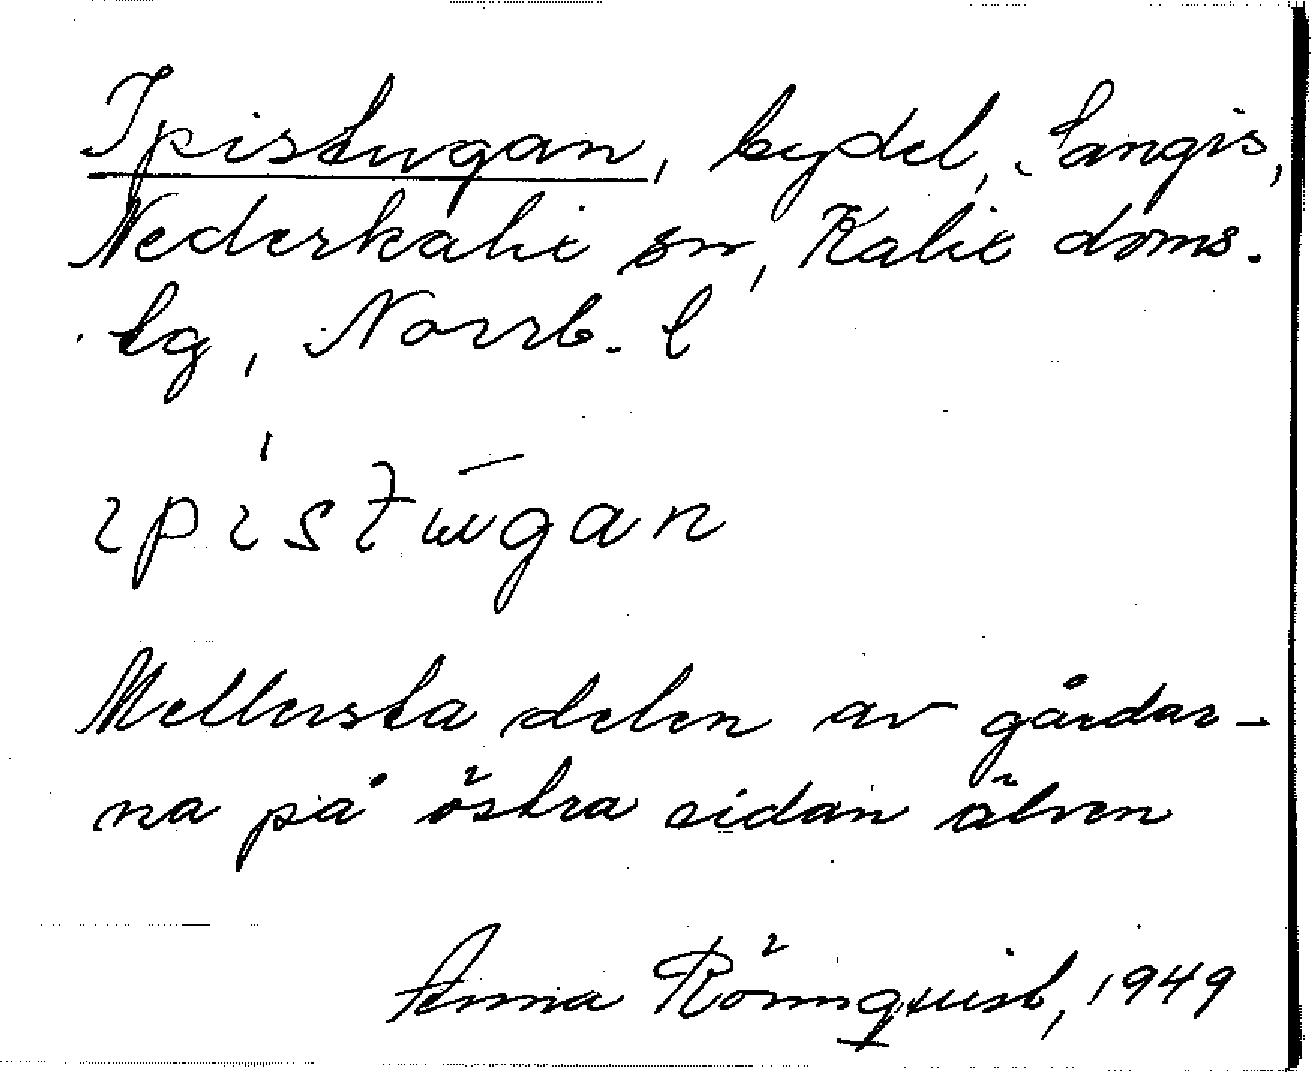 Ipistugan, bydel, Sangis,
Nederkalix sn, Kalix doms.
tg, Norrb. l
ipistugan
Mellersta delen av gårdar-
na på östra sidan älven
Anna Rönnquist, 1949